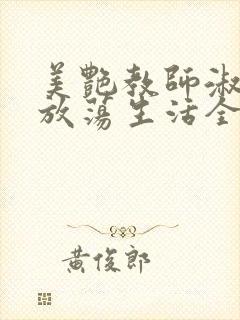 美艷教師淑
放蕩生活全
黃俊郎